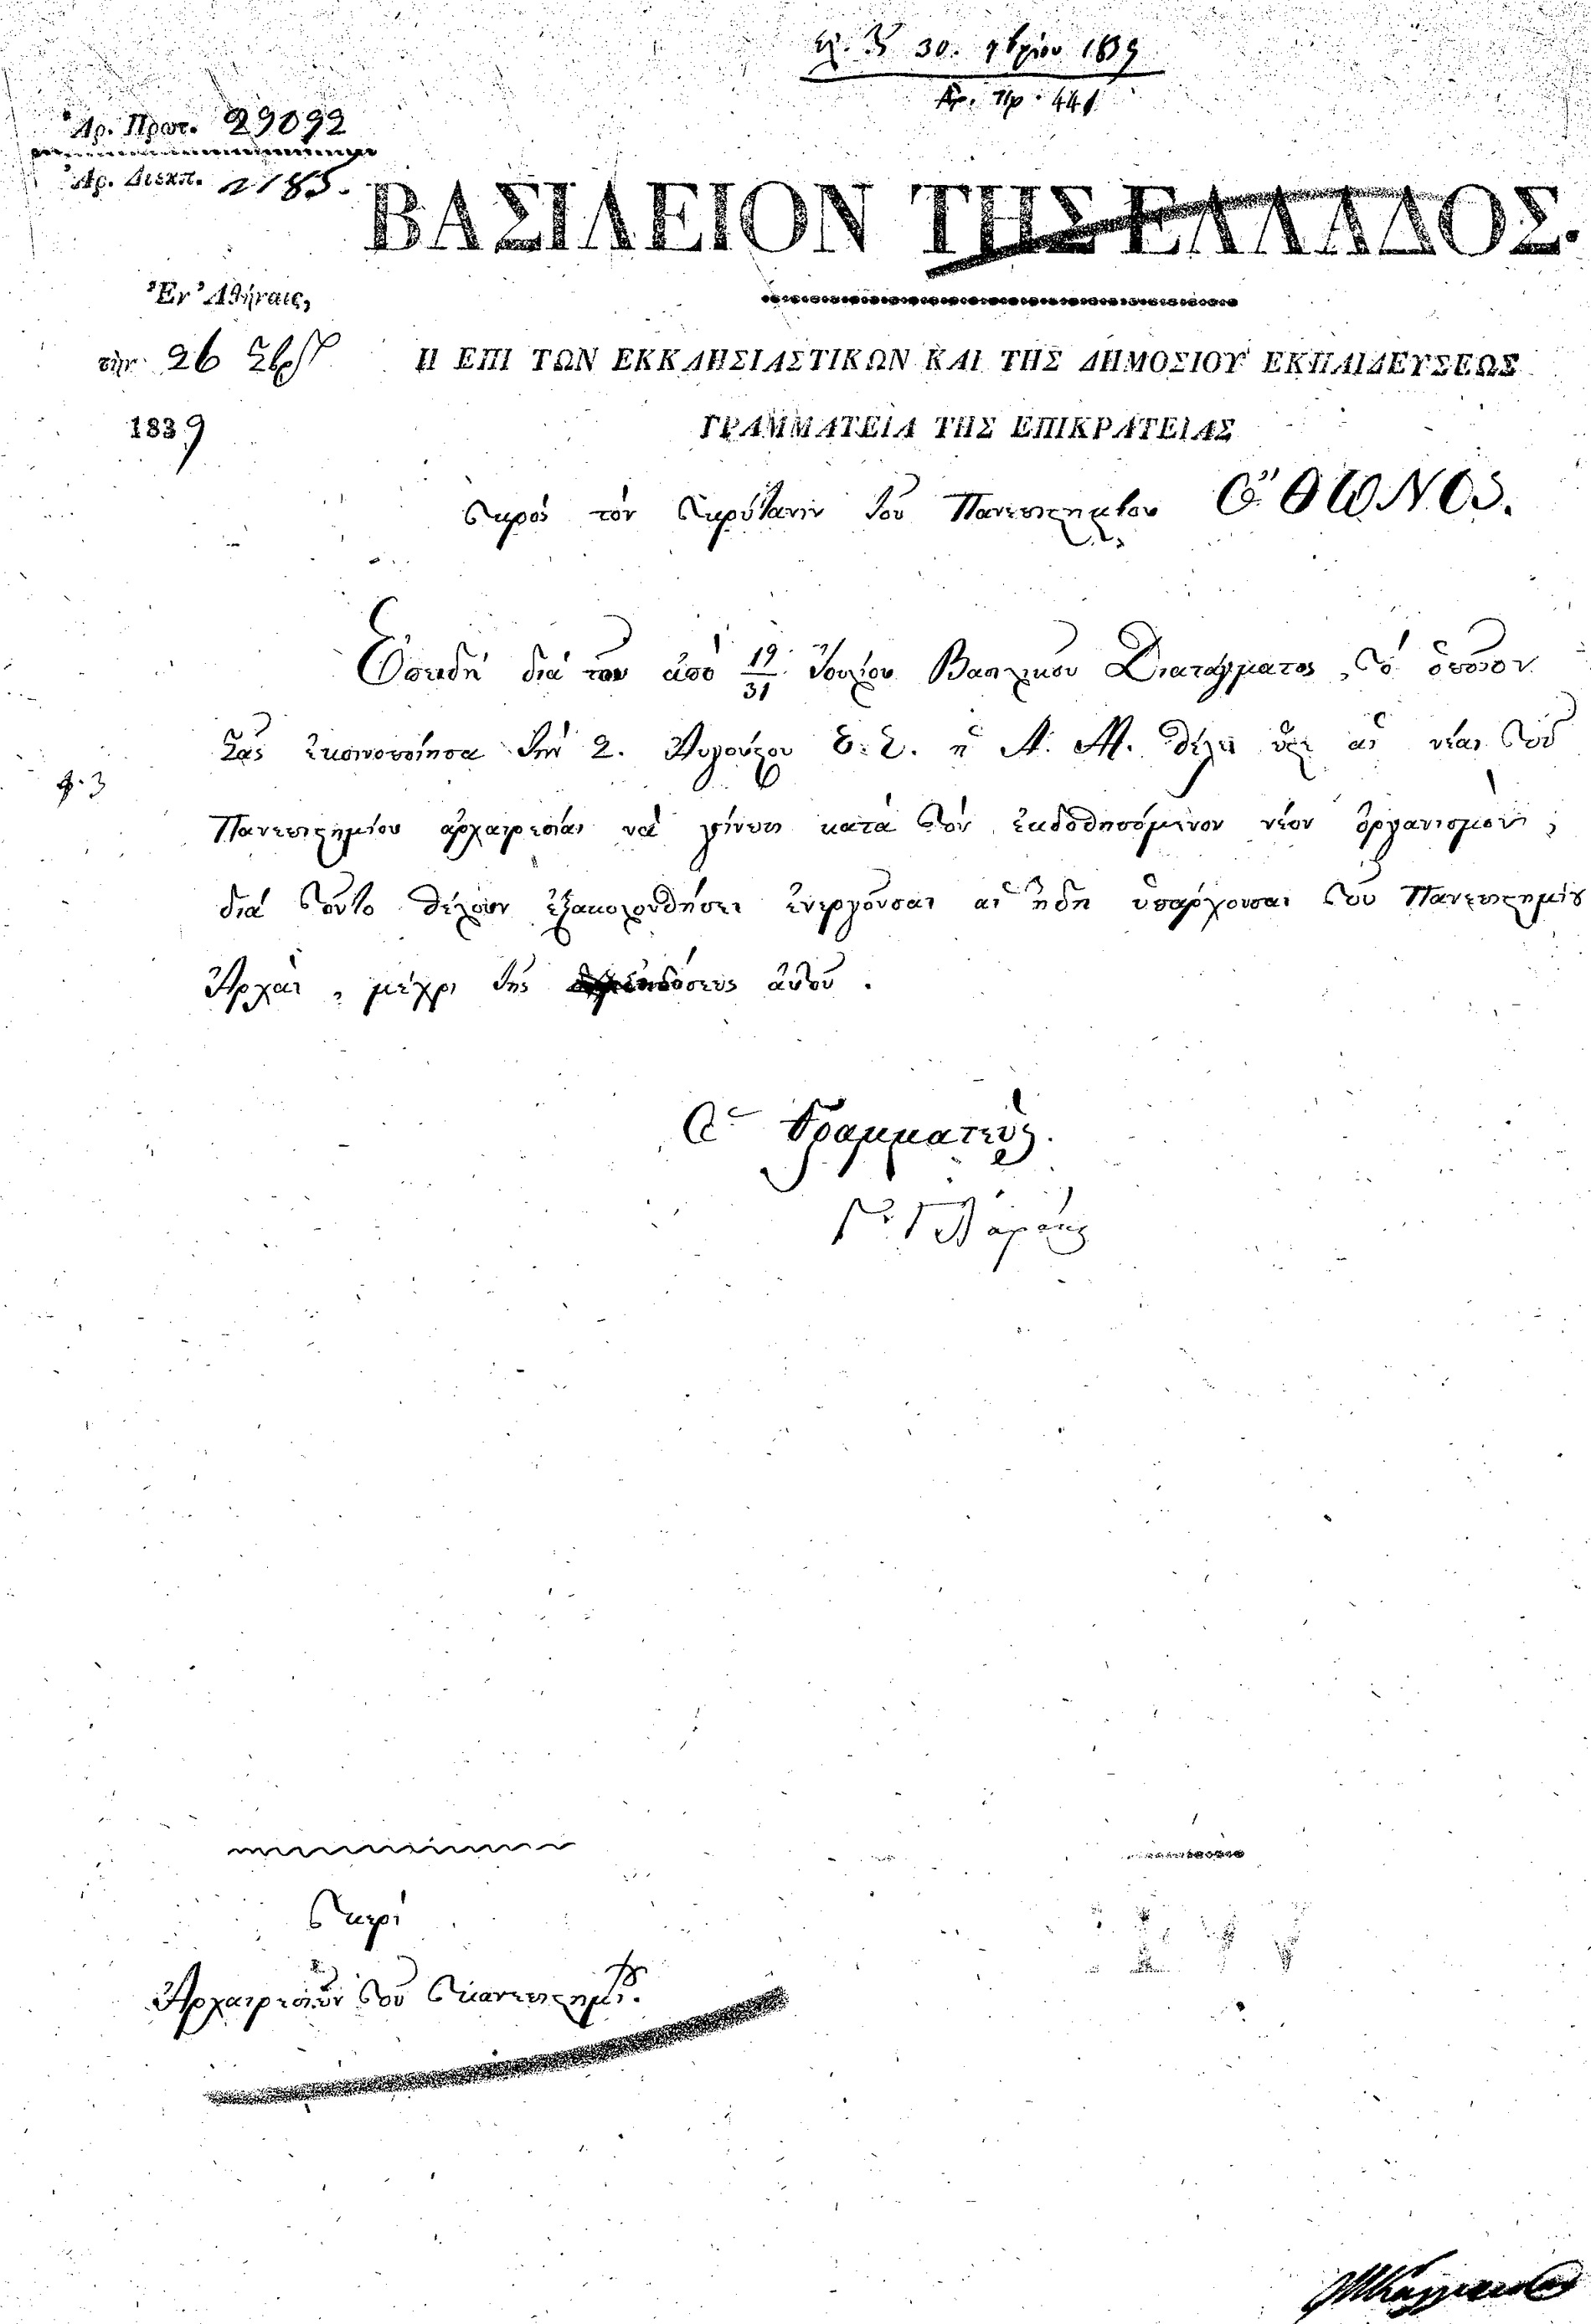 30. 7βρίου 1839
Ἀρ. Πρ. 441
Ἀρ. Πρωτ. 29092
Ἀρ. Διεκπ. 2185.
ΒΑΣΙΛΕΙΟΝ ΤΗΣ ΕΛΛΑΔΟΣ.
Ἐν Ἀθήναις,
τὴν 26 7βρ
1839
Η ΕΠΙ ΤΩΝ ΕΚΚΛΗΣΙΑΣΤΙΚΩΝ ΚΑΙ ΤΗΣ ΔΗΜΟΣΙΟΥ ΕΚΠΑΙΔΕΥΣΕΩΣ
ΓΡΑΜΜΑΤΕΙΑ ΤΗΣ ΕΠΙΚΡΑΤΕΙΑΣ
Πρὸς τὸν Πρύτανιν τοῦ Πανεπιστημίου ΟΘΩΝΟΣ.
Ἐπειδὴ διὰ τοῦ ἀπὸ 19/31 Ἰουλίου Βασιλικοῦ Διατάγματος, τὸ ὁποῖον
Σᾶς ἐκοινοποίησα τὴν 2. Αὐγούστου ἡ Α. Μ. θέλει αἱ νέαι τοῦ
Πανεπιστημίου ἀρχαιρεσίαι νὰ γίνωσι κατὰ τὸν ἐκδοθησόμενον νέον ὀργανισμὸν,
διὰ τοῦτο θέλουν ἐξακολουθήσει ἐνεργοῦσαι αἱ ἤδη ὑπάρχουσαι τοῦ Πανεπιστημίου
Ἀρχαὶ, μέχρι τῆς ἐκδόσεως αὐτοῦ.
φ. 3
Ὁ Γραμματεὺς.
Περὶ
Ἀρχαιρεσιῶν τοῦ Πανεπιστημίου.